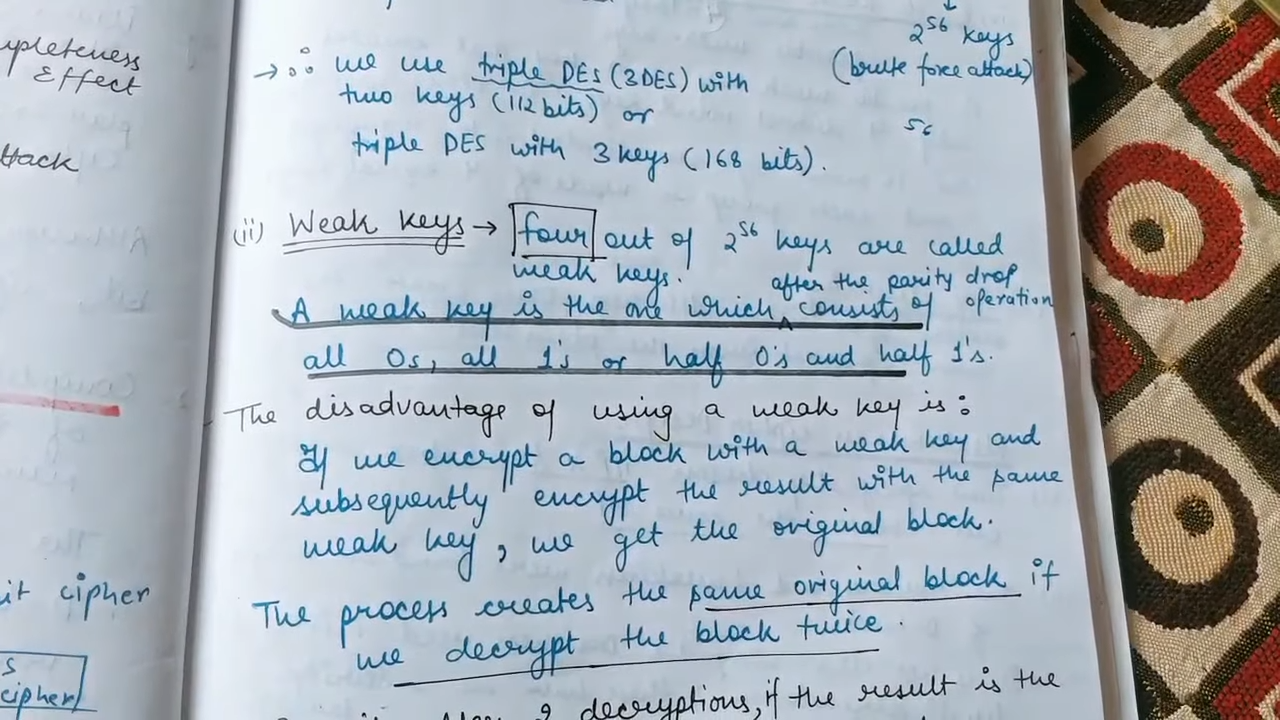 mpleteness
Effect
ttack
it cipher
s
cipher
2^56 keys
(brute force attack)
→ ∴ we use triple DES (3DES) with
two keys (112 bits) or
56
triple DES with 3 keys (168 bits).
(ii) Weak keys → four out of 2^56 keys are called
weak keys.
after the parity drop
operation
A weak key is the one which ^ consists of
all 0s, all 1's or half 0's and half 1's.
The disadvantage of using a weak key is :
If we encrypt a block with a weak key and
subsequently encrypt the result with the same
weak key, we get the original block.
The process creates the same original block if
we decrypt the block twice.
2 decryptions, if the result is the